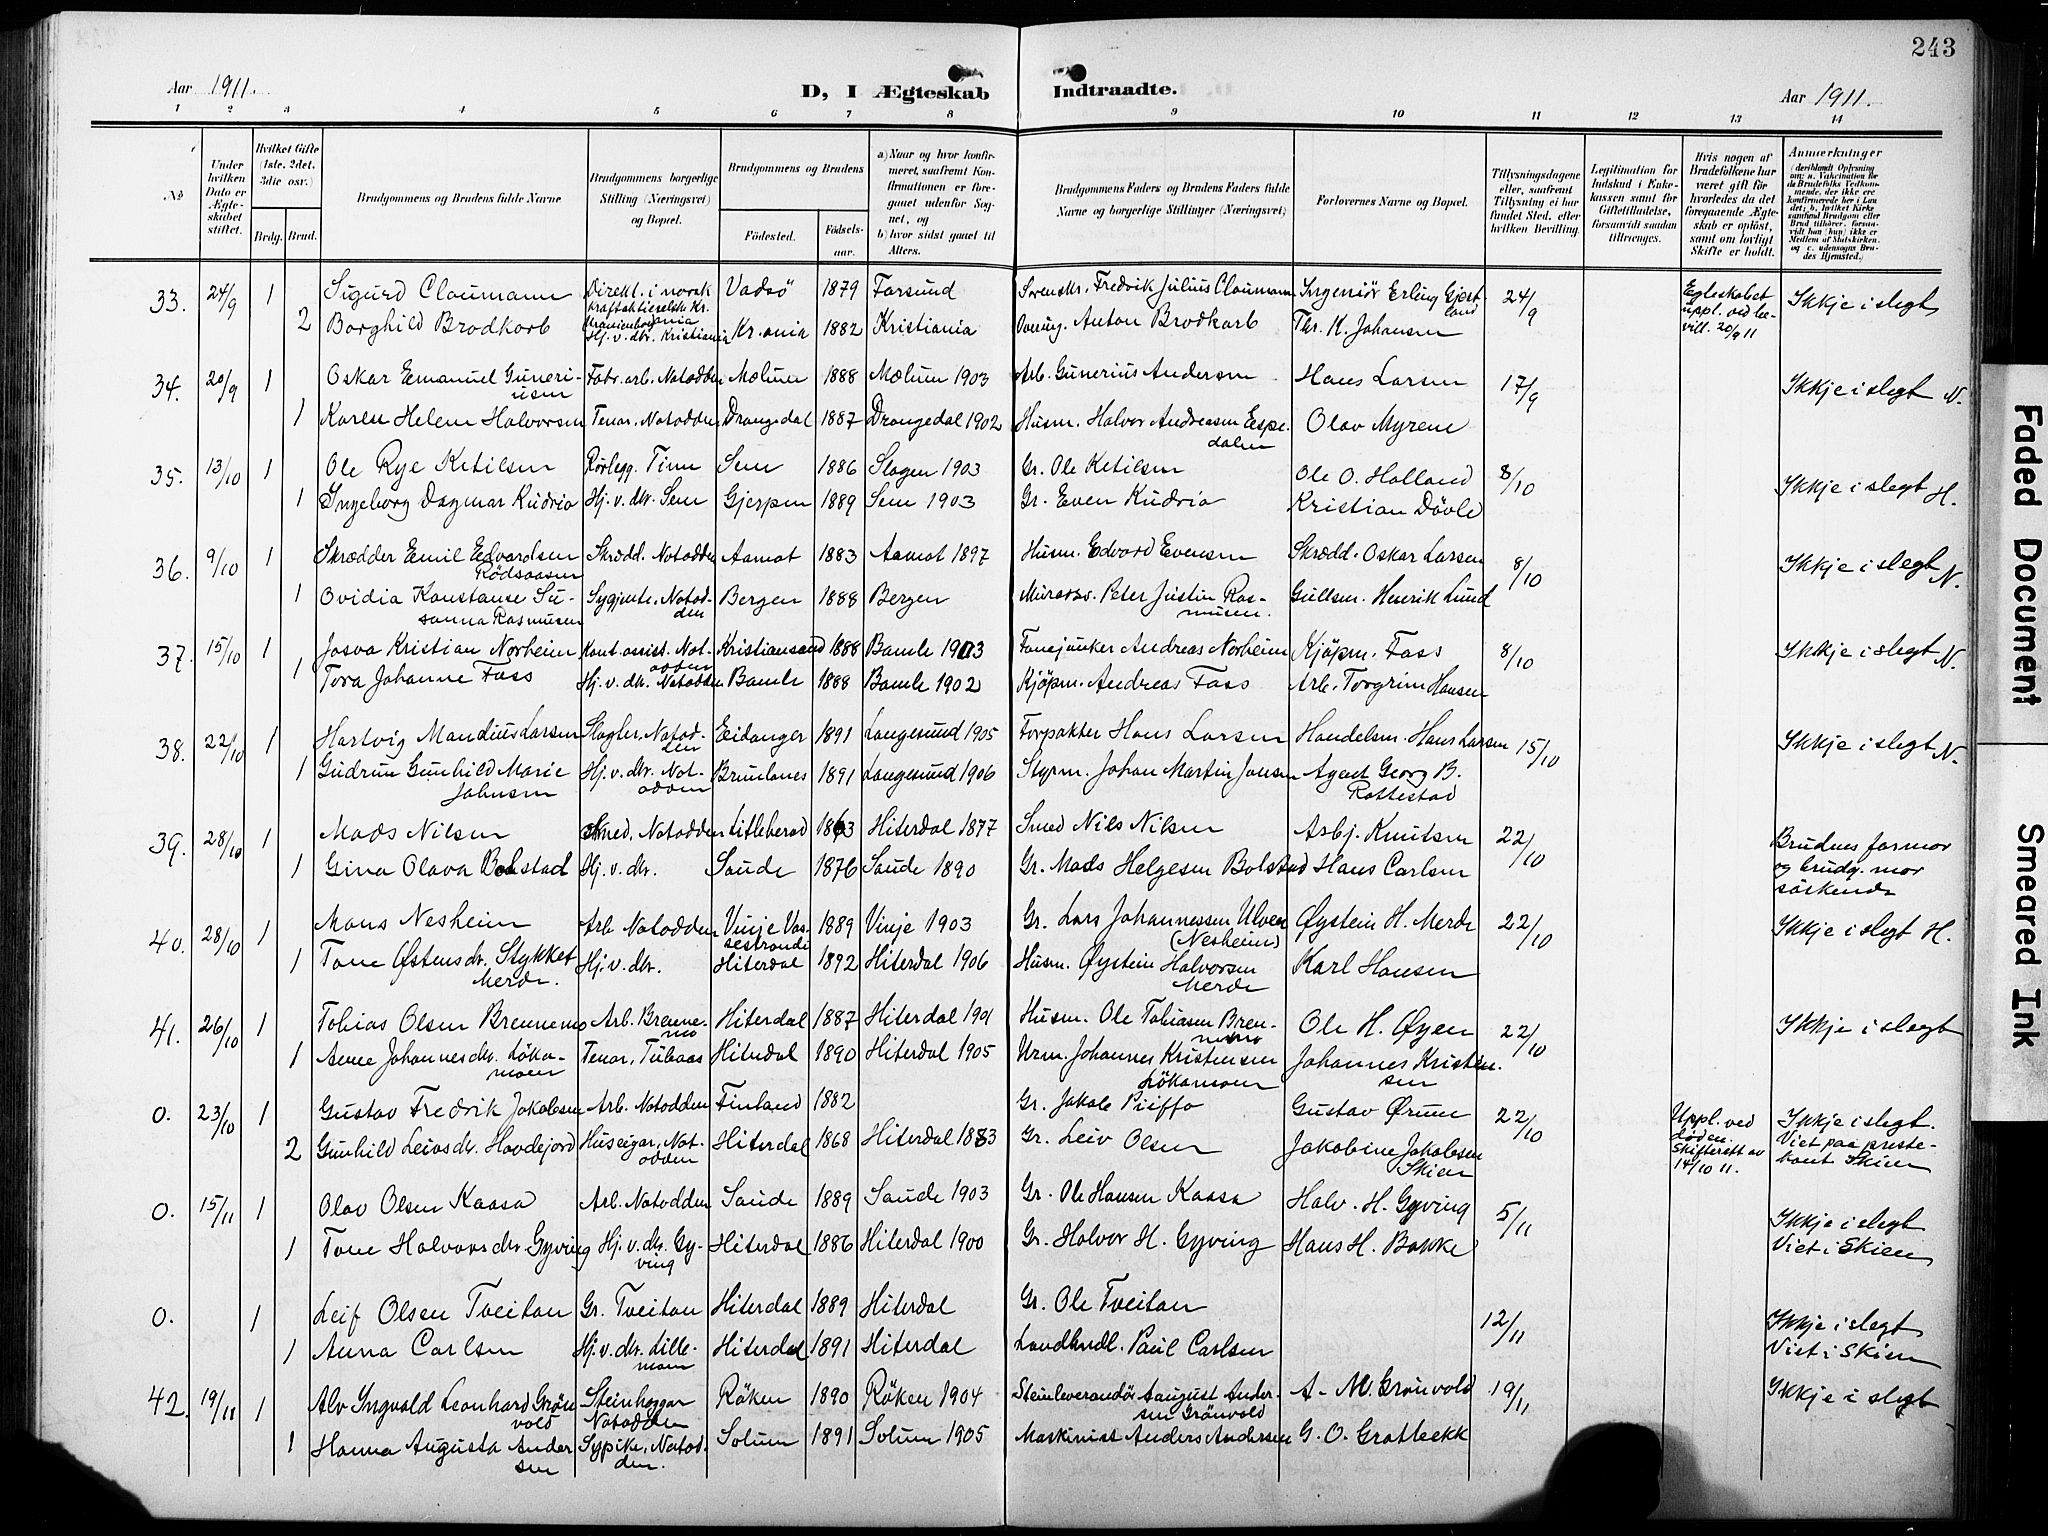 243
Aar 1911. D, I Ægteskab Indtraadte. Aar 1911.
1 2 3 4 5 6 7 8 9 10 11 12 13 14
No
Under hvilken Dato er Ægteskabet stiftet.
Hvilket Gifte (1ste, 2det, 3die osv.)
Brdg. Brud.
Brudgommens og Brudens fulde Navne
Brudgommens borgerlige Stilling (Næringsvei) og Bopæl.
Brudgommens og Brudens
Fødested. Fødselsaar.
a) Naar og hvor konfirmeret, saafremt Konfirmationen er foregaaet udenfor Sognet, og
b) hvor sidst gaaet til Alters.
Brudgommens Faders og Brudens Faders fulde Navne og borgerlige Stillinger (Næringsvei)
Forlovernes Navne og Bopæl.
Tillysningsdagene eller, saafremt Tillysning ei har fundet Sted, efter hvilken Bevilling.
Legitimation for Indskud i Enkekassen samt for Giftetilladelse, forsaavidt saadan tiltrænges.
Hvis nogen af Brudefolkene har været gift før hvorledes da det foregaaende Ægteskab er opløst, samt om lovligt Skifte er holdt.
Anmerkninger
(deriblandt Oplysning om: a. Vakcination for de Brudefolks Vedkommende, der ikke ere konfirmerede her i Landet; b. hvilket Kirkesamfund Brudgom eller Brud tilhører, forsaavidt han (hun) ikke er Medlem af Statskirken, og c. udensogns Brudes Hjemsted.)
33. 24/9 1 Sigurd Claumann Direkt. i norsk kraftaktieselsk. Kr.ania Vadsö 1879 Farsund Fredrik Julius Claumann Ingeniör Erling Gjertland 24/9 Egteskabet uppl. ved bevill. 20/9 11 Ikkje i slegt
2 Borghild Brodkorb Hj. v. dtr. Kristiania Kr.ania 1882 Kristiania Anton Brodkorb Thr. K. Johansen
34. 20/9 1 Oskar Emanuel Guneriusen Fabr. arb. Notodden Mælum 1888 Mælum 1903 Arb. Gunerius Andersen Hans Larsen 17/9 Ikkje i slegt N.
1 Karen Helene Halvorsen Tenar, Notodden Drangedal 1887 Drangedal 1902 Husm. Halvor Andreasen Espedalen Olav Myrene
35. 13/10 1 Ole Rye Ketilsen Rörlegg. Tinn Sem 1886 Slagen 1903 Gr. Ole Ketilsen Ole O. Holland 8/10 Ikkje i slegt H.
1 Ingeborg Dagmar Kudrio Hj. v. dtr. Sem Gjerpen 1889 Sem 1903 Gr. Even Kudrio Kristian Dövle
36. 9/10 1 Skrædder Emil Edvardsen Rödsaasen Skrædd. Notodden Aamot 1883 Aamot 1897 Husm. Edvard Evensen Skrædd. Oskar Larsen 8/10 Ikkje i slegt N.
1 Ovidia Konstanse Susanna Rasmusen Sygjente, Notodden Bergen 1888 Bergen Peter Justin Rasmusen. Gullsm. Henrik Lund
37. 15/10 1 Josva Kristian Norheim Kont. assist. Notodden Kristiansand 1888 Bamle 1903 Fanejunker Andreas Norheim Kjöpm. Fass 8/10 Ikkje i slegt N.
1 Tora Johanne Fass Hj. v. dtr. Notodden Bamle 1888 Bamle 1902 Kjöpm. Andreas Fass Arb. Torgrim Hansen
38. 22/10 1 Hartvig Mandius Larsen Slagter, Notodden Eidanger 1891 Langesund 1905 Forpakter Hans Larsen Handelsm. Hans Larsen 15/10 Ikkje i slegt N.
1 Gudrun Gunhild Marie Johnsen Hj. v. dtr. Notodden Brunlanes 1891 Langesund 1906 Styrm. Johan Martin Jonsen Agent Georg B. Rottestad
39. 28/10 1 Mads Nilsen Smed, Notodden Litleherad 1863 Hiterdal 1877 Smed Nils Nilsen Asbj. Knutsen 22/10 Brudnes farmor og brudg. mor söskende
1 Gina Olava Bolstad Hj. v. dtr. Saude 1876 Saude 1890 Gr. Mads Helgesen Bolstad Hans Carlsen
40. 28/10 1 Mons Nesheim Arb. Notodden Vinje Vossestrand 1889 Vinje 1903 Gr. Lars Johannessen Ulven (Nesheim) Øystein H. Merde 22/10 Ikkje i slegt H.
1 Tone Østensdr. Stykket Merde. Hj. v. dtr. Hiterdal 1892 Hiterdal 1906 Husm. Øystein Halvorsen Merde Karl Hansen
41. 26/10 1 Tobias Olsen Brennemo Arb. Brennemo Hiterdal 1887 Hiterdal 1901 Husm. Ole Tobiasen Brennemo Ole H. Øyen 22/10 Ikkje i slegt
1 Anne Johannesdr. Lökamoen Tenar, Tubaas Hiterdal 1890 Hiterdal 1905 Urm. Johannes Kristensen Lökamoen Johannes Kristensen
0. 23/10 1 Gustav Fredrik Jakobsen Arb. Notodden Finland 1882 Gr. Jakob Piiffo Gustav Ørum 22/10 Uppl. ved döden. Skifterett av 14/10 11. Ikkje i slegt. Viet paa prestekont Skien
2 Gunhild Leivsdr. Hovdejord Huseigar, Notodden Hiterdal 1868 Hiterdal 1883 Gr. Leiv Olsen Jakobine Jakobsen Skien
0. 15/11 1 Olav Olsen Kaasa Arb. Notodden Saude 1889 Saude 1903 Gr. Ole Hansen Kaasa Halv. H. Gyving 5/11 Ikkje i slegt Viet i Skien
1 Tone Halvorsdr. Gyving Hj. v. dtr. Gyving Hiterdal 1886 Hiterdal 1900 Gr. Halvor H. Gyving Hans H. Bakke
0. 1 Leif Olsen Tveitan Gr. Tveitan Hiterdal 1889 Hiterdal Gr. Ole Tveitan 12/11 Ikkje i slegt Viet i Skien
1 Anna Carlsen Hj. v. dtr. Lillemoen Hiterdal 1891 Hiterdal Landhndl. Paul Carlsen
42. 19/11 1 Alv Ingvald Leonhard Grönvold Steinhoggar Notodden Röken 1890 Röken 1904 Steinleverandör Aaugust Andersen Grönvold A. M. Grönvold 19/11 Ikkje i slegt
1 Hanna Augusta Andersen Sypike, Notodden. Solum 1891 Solum 1905 Maskinist Anders Andersen G. O. Gratbekk
Faded Document
Smeared Ink